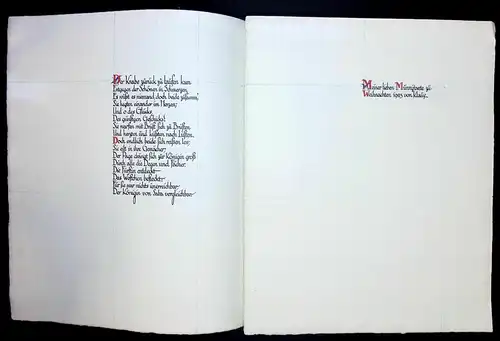 Der Knabe zurück zu laufen kam
Entgegen der Schönen in Schmerzen,
Es wußt es niemand, doch beide zusamm',
Sie hegten einander im Herzen;
Und o des Glücks,
Des günstigen Geschicks!
Sie warfen mit Brüst sich zu Brüsten,
Und herzten und küßten nach Lüsten.
Doch endlich beide sich reißen los;
Sie eilt in ihre Gemächer;
Der Page drängt sich zur Königin groß
Durch alle die Degen und Fächer.
Die Fürstin entdeckt
Das Westchen befleckt:
Für sie war nichts unerreichbar,
Der Königin von Saba vergleichbar.
Meiner lieben zu
Weihnachten 1923 von